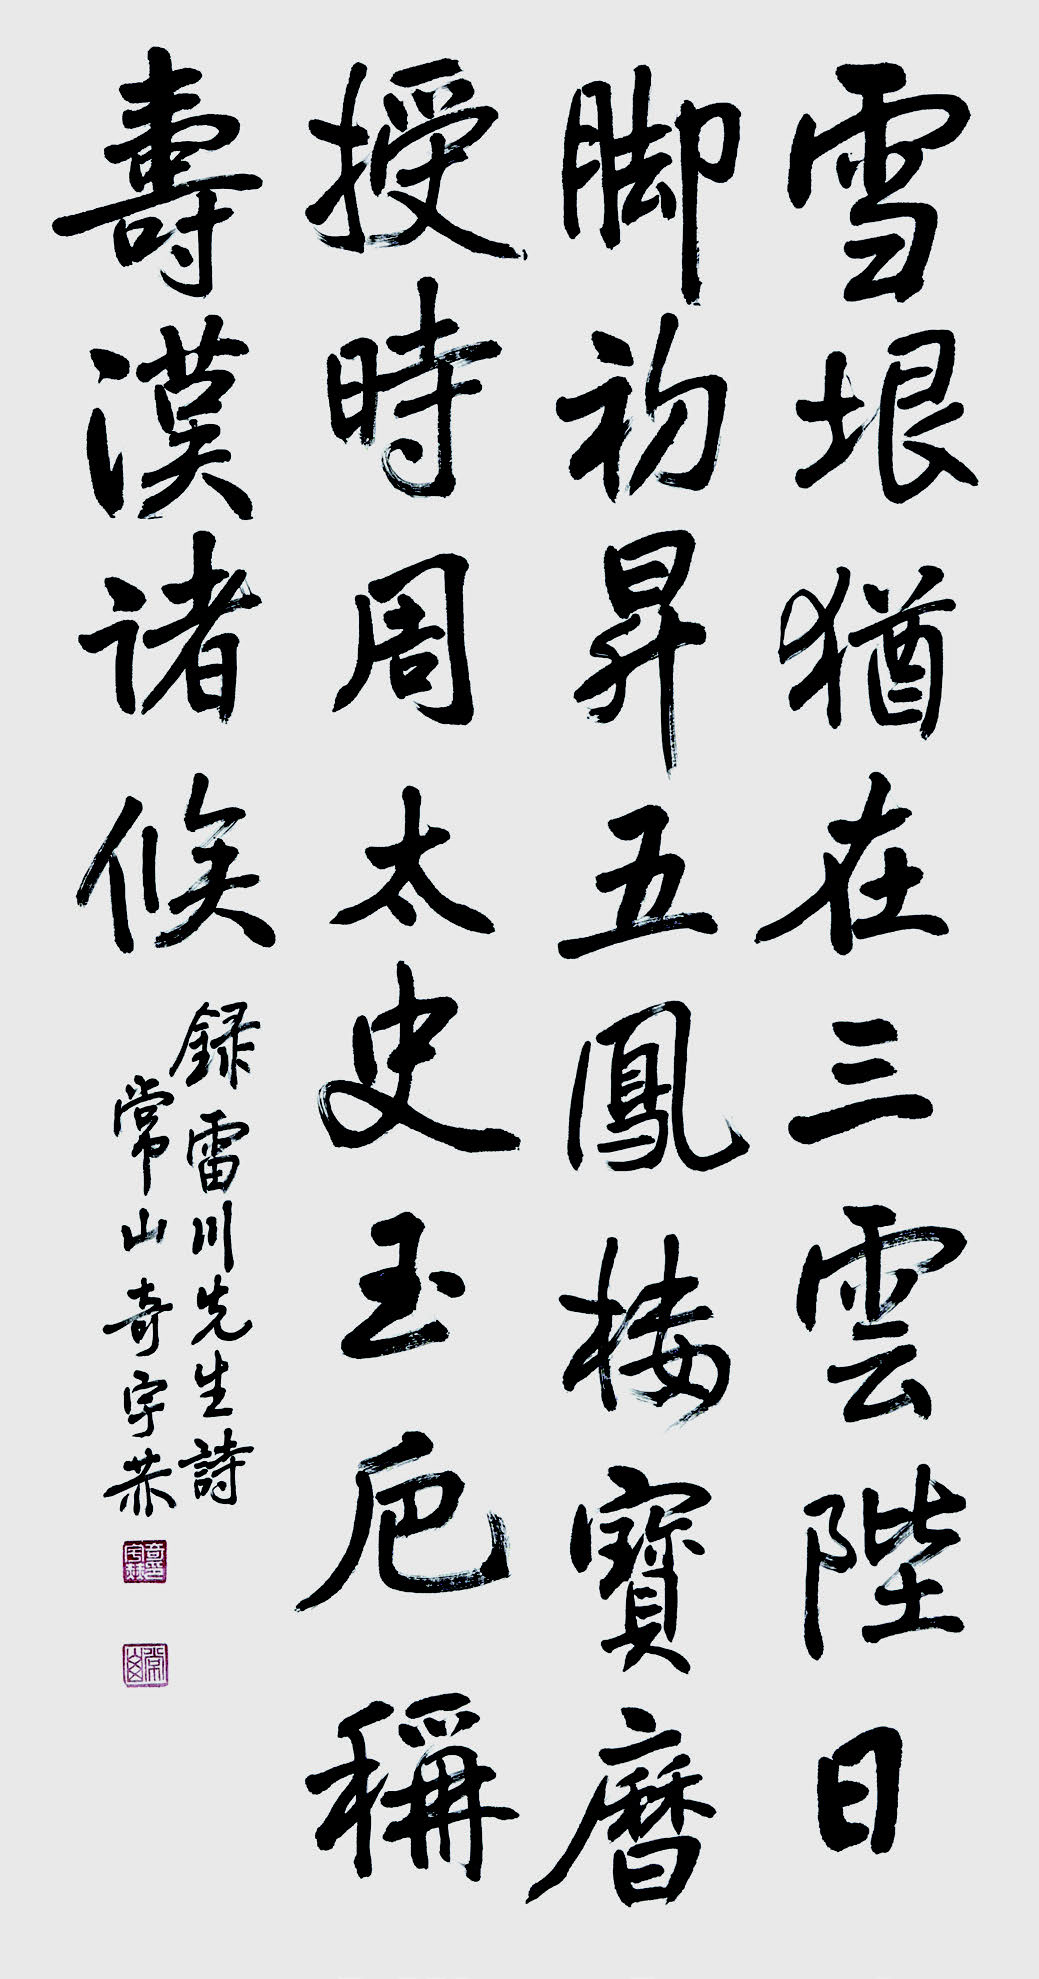 雪垠猶在三雲陛日
脚初昇五鳳楼寶曆
授時周太史玉卮稱
壽漢諸侯
錄雷川先生詩
常山奇宇恭